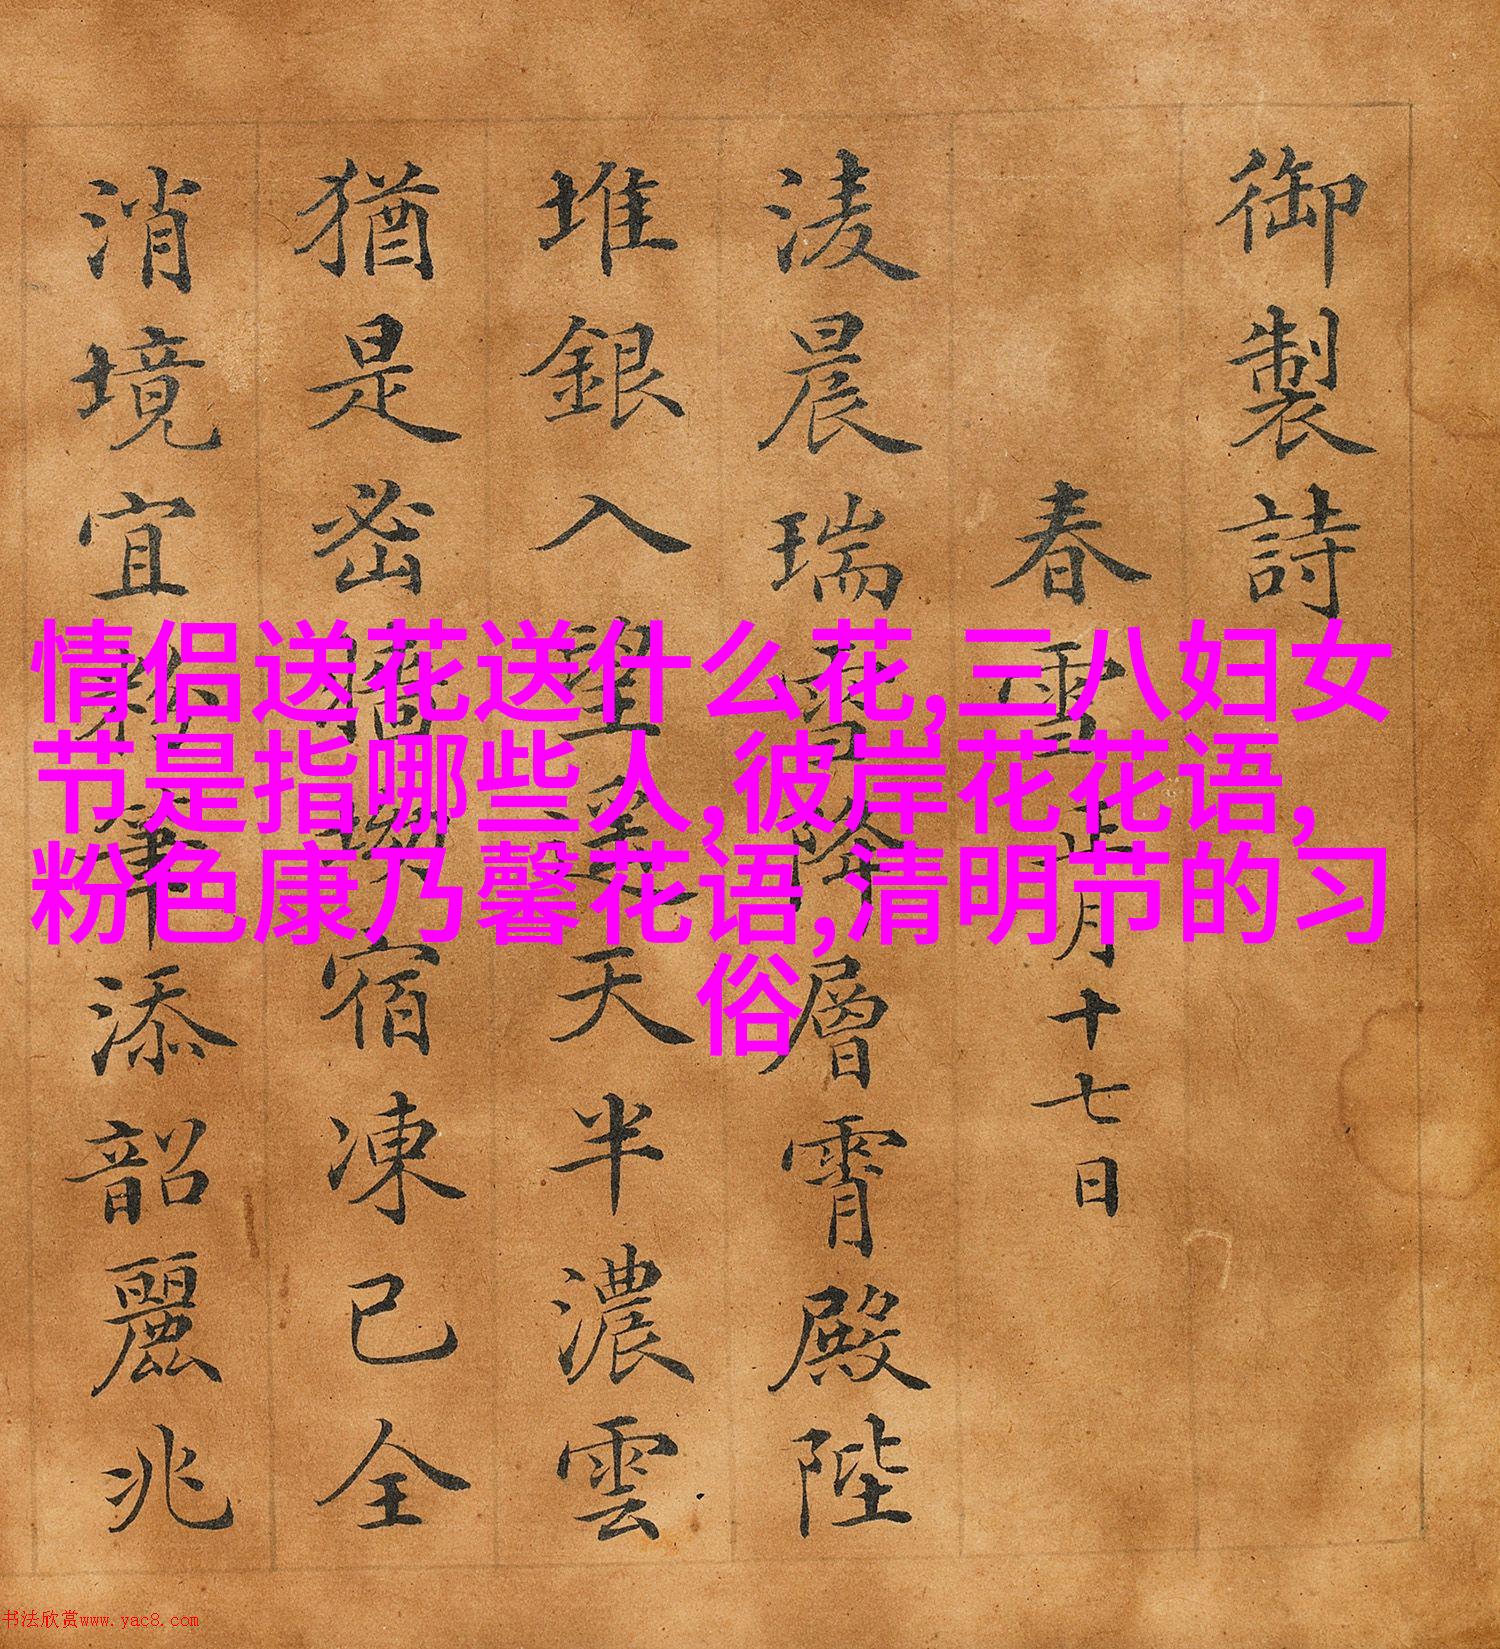 御製詩
春雪正月十七日
淩晨瑞雪降層霄殿陛
堆銀入望遙天半濃雲
猶是密宿凍已全
消境宜筆添韶麗兆
情侣送花送什么花,三八妇女
节是指哪些人,彼岸花花语,
粉色康乃馨花语,清明节的习
俗
书法欣赏www.yac8.com